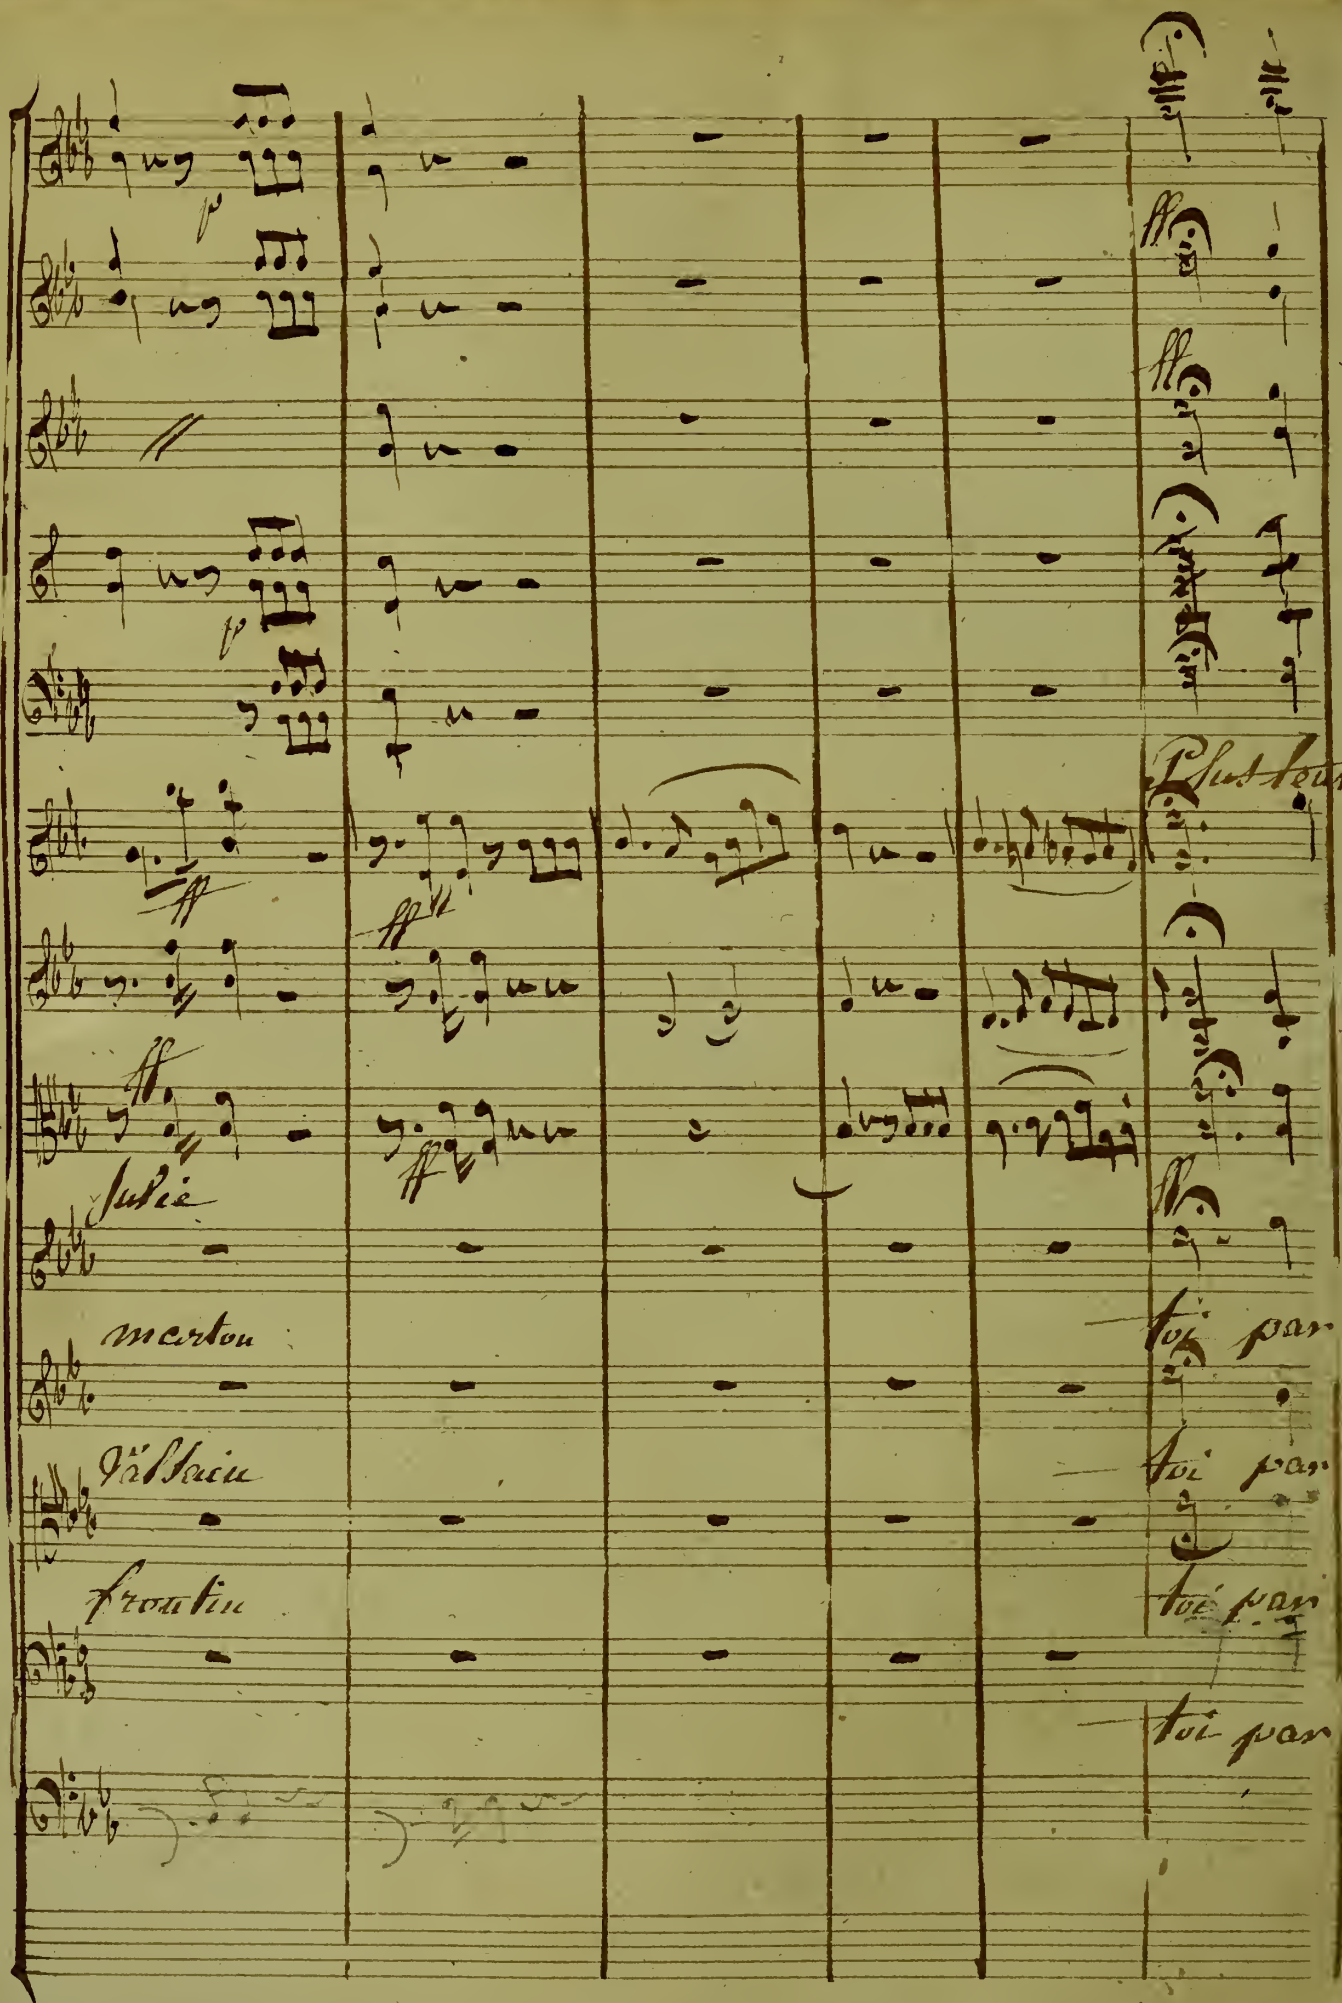 p
ff
ff
p
Plus len
ff
ff
ff
ff
ff
Julie
toi par
marton
toi par
Välsain
toi par
frontin
toi par